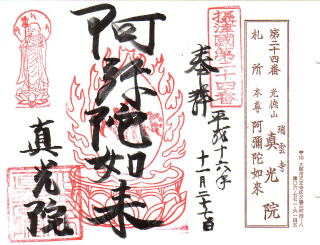 摂津國第二十四番
奉拝
平成十六年
十一月二十七日
阿弥陀如来
真光院
第二十四番
札所
光徳山
瑞雲寺
真光院
本尊
阿彌陀如来